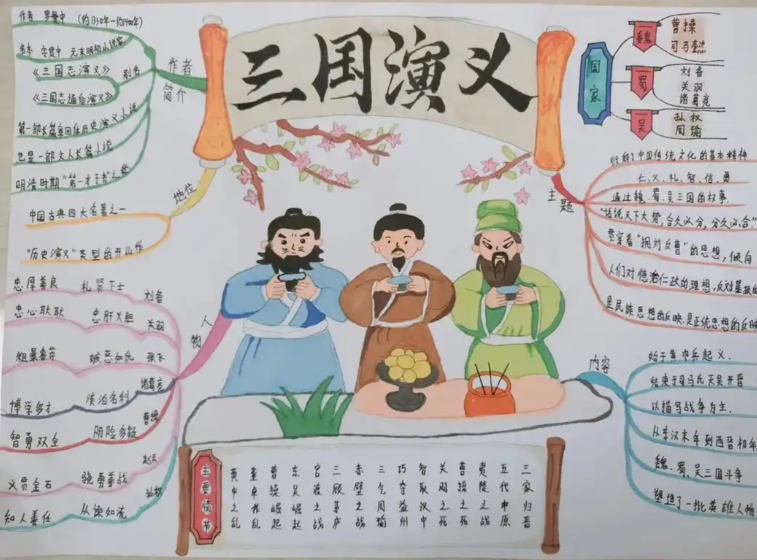 三国演义
作者简介
作者 罗贯中 (约1330年-约1400年)
元末明初小说家
别名
《三国志演义》
《三国志通俗演义》
第一部长篇章回体历史演义小说
也是一部文人长篇小说
明清时期"第一才子书"之称
地位
中国古典四大名著之一
"历史演义"类型的开山作
人物
刘备 礼贤下士 忠厚善良
关羽 忠肝义胆 忠心耿耿
张飞 嫉恶如仇 粗暴鲁莽
诸葛亮 淡泊名利 博学多才
曹操 阴险多疑 智勇双全
骁勇善战 义贯金石
孙权 从谏如流 知人善任
国家
魏 曹操
司马懿
蜀 刘备
关羽
诸葛亮
吴 孙权
周瑜
主题
中国传统文化的基本精神
仁、义、礼、智、信、勇
通过魏、蜀、吴三国的故事
"话说天下大势,分久必合,合久必分"
贯穿着"拥刘反曹"的思想,倾向
人们对
仁政的理想,反对暴政
是民族思想的反映,是正统思想的反映
内容
始于黄巾兵起义,
结束于司马氏灭吴开晋
以描写战争为主.
从东汉末年到西晋初年
魏、蜀、吴三国斗争
塑造了一批英雄人物
主要情节
三家归晋
五代中原
夷陵之战
曹操之死
关羽之死
智取汉中
巧夺益州
三气周瑜
赤壁之战
三顾茅庐
官渡之战
东吴崛起
曹操崛起
董卓作乱
黄巾之乱